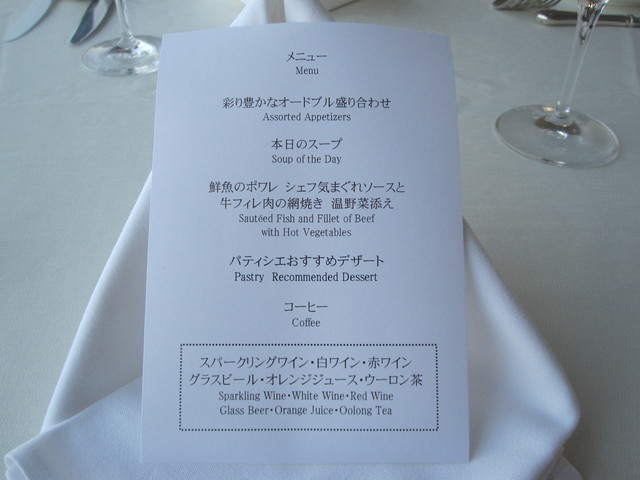 メニュー
Menu
彩り豊かなオードブル盛り合わせ
Assorted Appetizers
本日のスープ
Soup of the Day
鮮魚のポワレ シェフ気まぐれソースと
牛フィレ肉の網焼き 温野菜添え
Sautéed Fish and Fillet of Beef
with Hot Vegetables
パティシエおすすめデザート
Pastry Recommended Dessert
コーヒー
Coffee
スパークリングワイン・白ワイン・赤ワイン
グラスビール・オレンジジュース・ウーロン茶
Sparkling Wine・White Wine・Red Wine
Glass Beer・Orange Juice・Oolong Tea